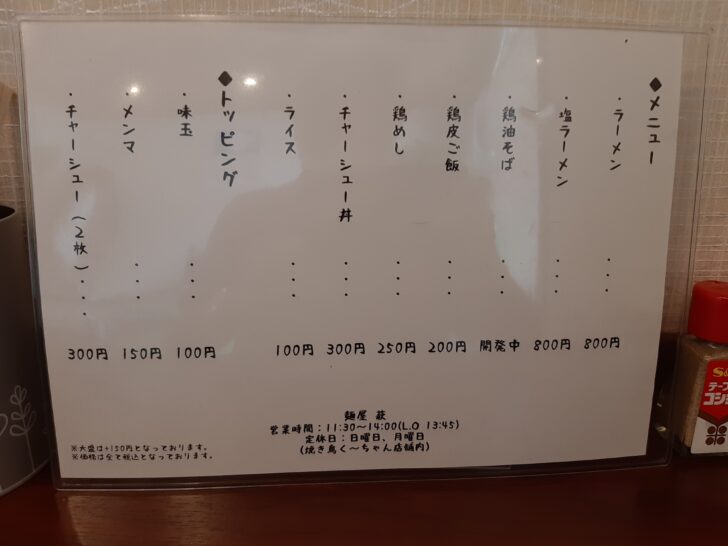 ◆メニュー
・ラーメン ・・・ 800円
・塩ラーメン ・・・ 800円
・鶏油そば ・・・ 開発中
・鶏皮ご飯 ・・・ 200円
・鶏めし ・・・ 250円
・チャーシュー丼 ・・・ 300円
・ライス ・・・ 100円
◆トッピング
・味玉 ・・・ 100円
・メンマ ・・・ 150円
・チャーシュー(2枚)・・・ 300円
麺屋 萩
営業時間：11:30～14:00(L.O 13:45)
定休日：日曜日、月曜日
(焼き鳥く～ちゃん店舗内)
※大盛は+150円となっております。
※価格は全て税込となっております。
S&
テー
コショ